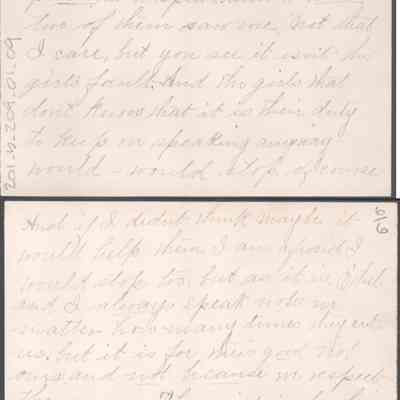 two of them saw me, Not that
I care, but you see it isn't the
girls fault. And the girls that
don't know that it is their duty
to keep on speaking anyway
would – would stop of course
201.W.209.01.09
6/6
And if I didn't think maybe it
would help them I am afraid I
would stop too. but as it is, Ethel
and I always speak now no
matter how many times they cut
us. but it is for their good not
ours and not because we respect